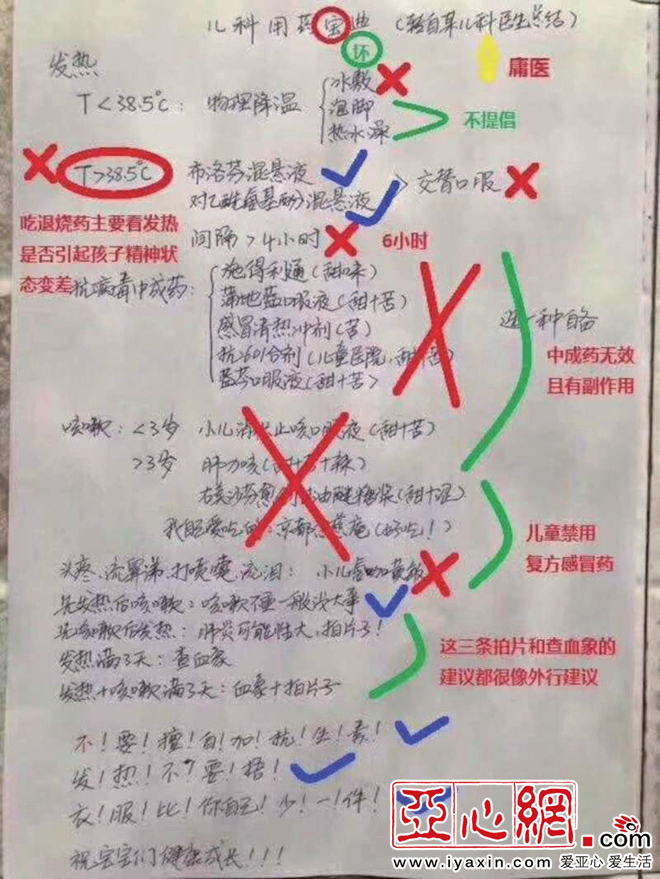 儿科用药宝典(转自某儿科医生总结)
坏
庸医
发热
T<38.5℃: 物理降温
冰敷
泡脚
热水澡
不提倡
T>38.5℃
布洛芬混悬液
对乙酰氨基酚混悬液
>交替口服
吃退烧药主要看发热
是否引起孩子精神状
态变差
间隔>4小时
6小时
抗病毒中成药:
施得利通(甜口味)
蒲地蓝口服液(甜+苦)
感冒清热冲剂(苦)
抗601合剂(儿童医院,甜+苦)
蓝芩口服液(甜+苦)
选一种
中成药无效
且有副作用
咳嗽: <3岁 小儿消积止咳口服液(甜+苦)
>3岁 肺力咳(甜+苦+辣)
右美沙芬愈创甘油醚糖浆(甜+涩)
我眶爱吃的:京都念慈庵(好吃!)
儿童禁用
复方感冒药
头疼、流鼻涕、打喷嚏、流泪: 小儿氨咖黄敏
先发热后咳嗽: 咳嗽不重一般没大事
先咳嗽后发热: 肺炎可能性大,拍片子!
发热满3天: 查血象
发热+咳嗽满3天: 血象+拍片子
这三条拍片和查血象的
建议都很像外行建议
不!要!擅!自!加!抗!生!素!
发!热!不!要!捂!
衣!服!比!你自己!少!一!件!
祝宝宝们健康成长!!!
亞心網.com
www.iyaxin.com 爱亚心 爱生活